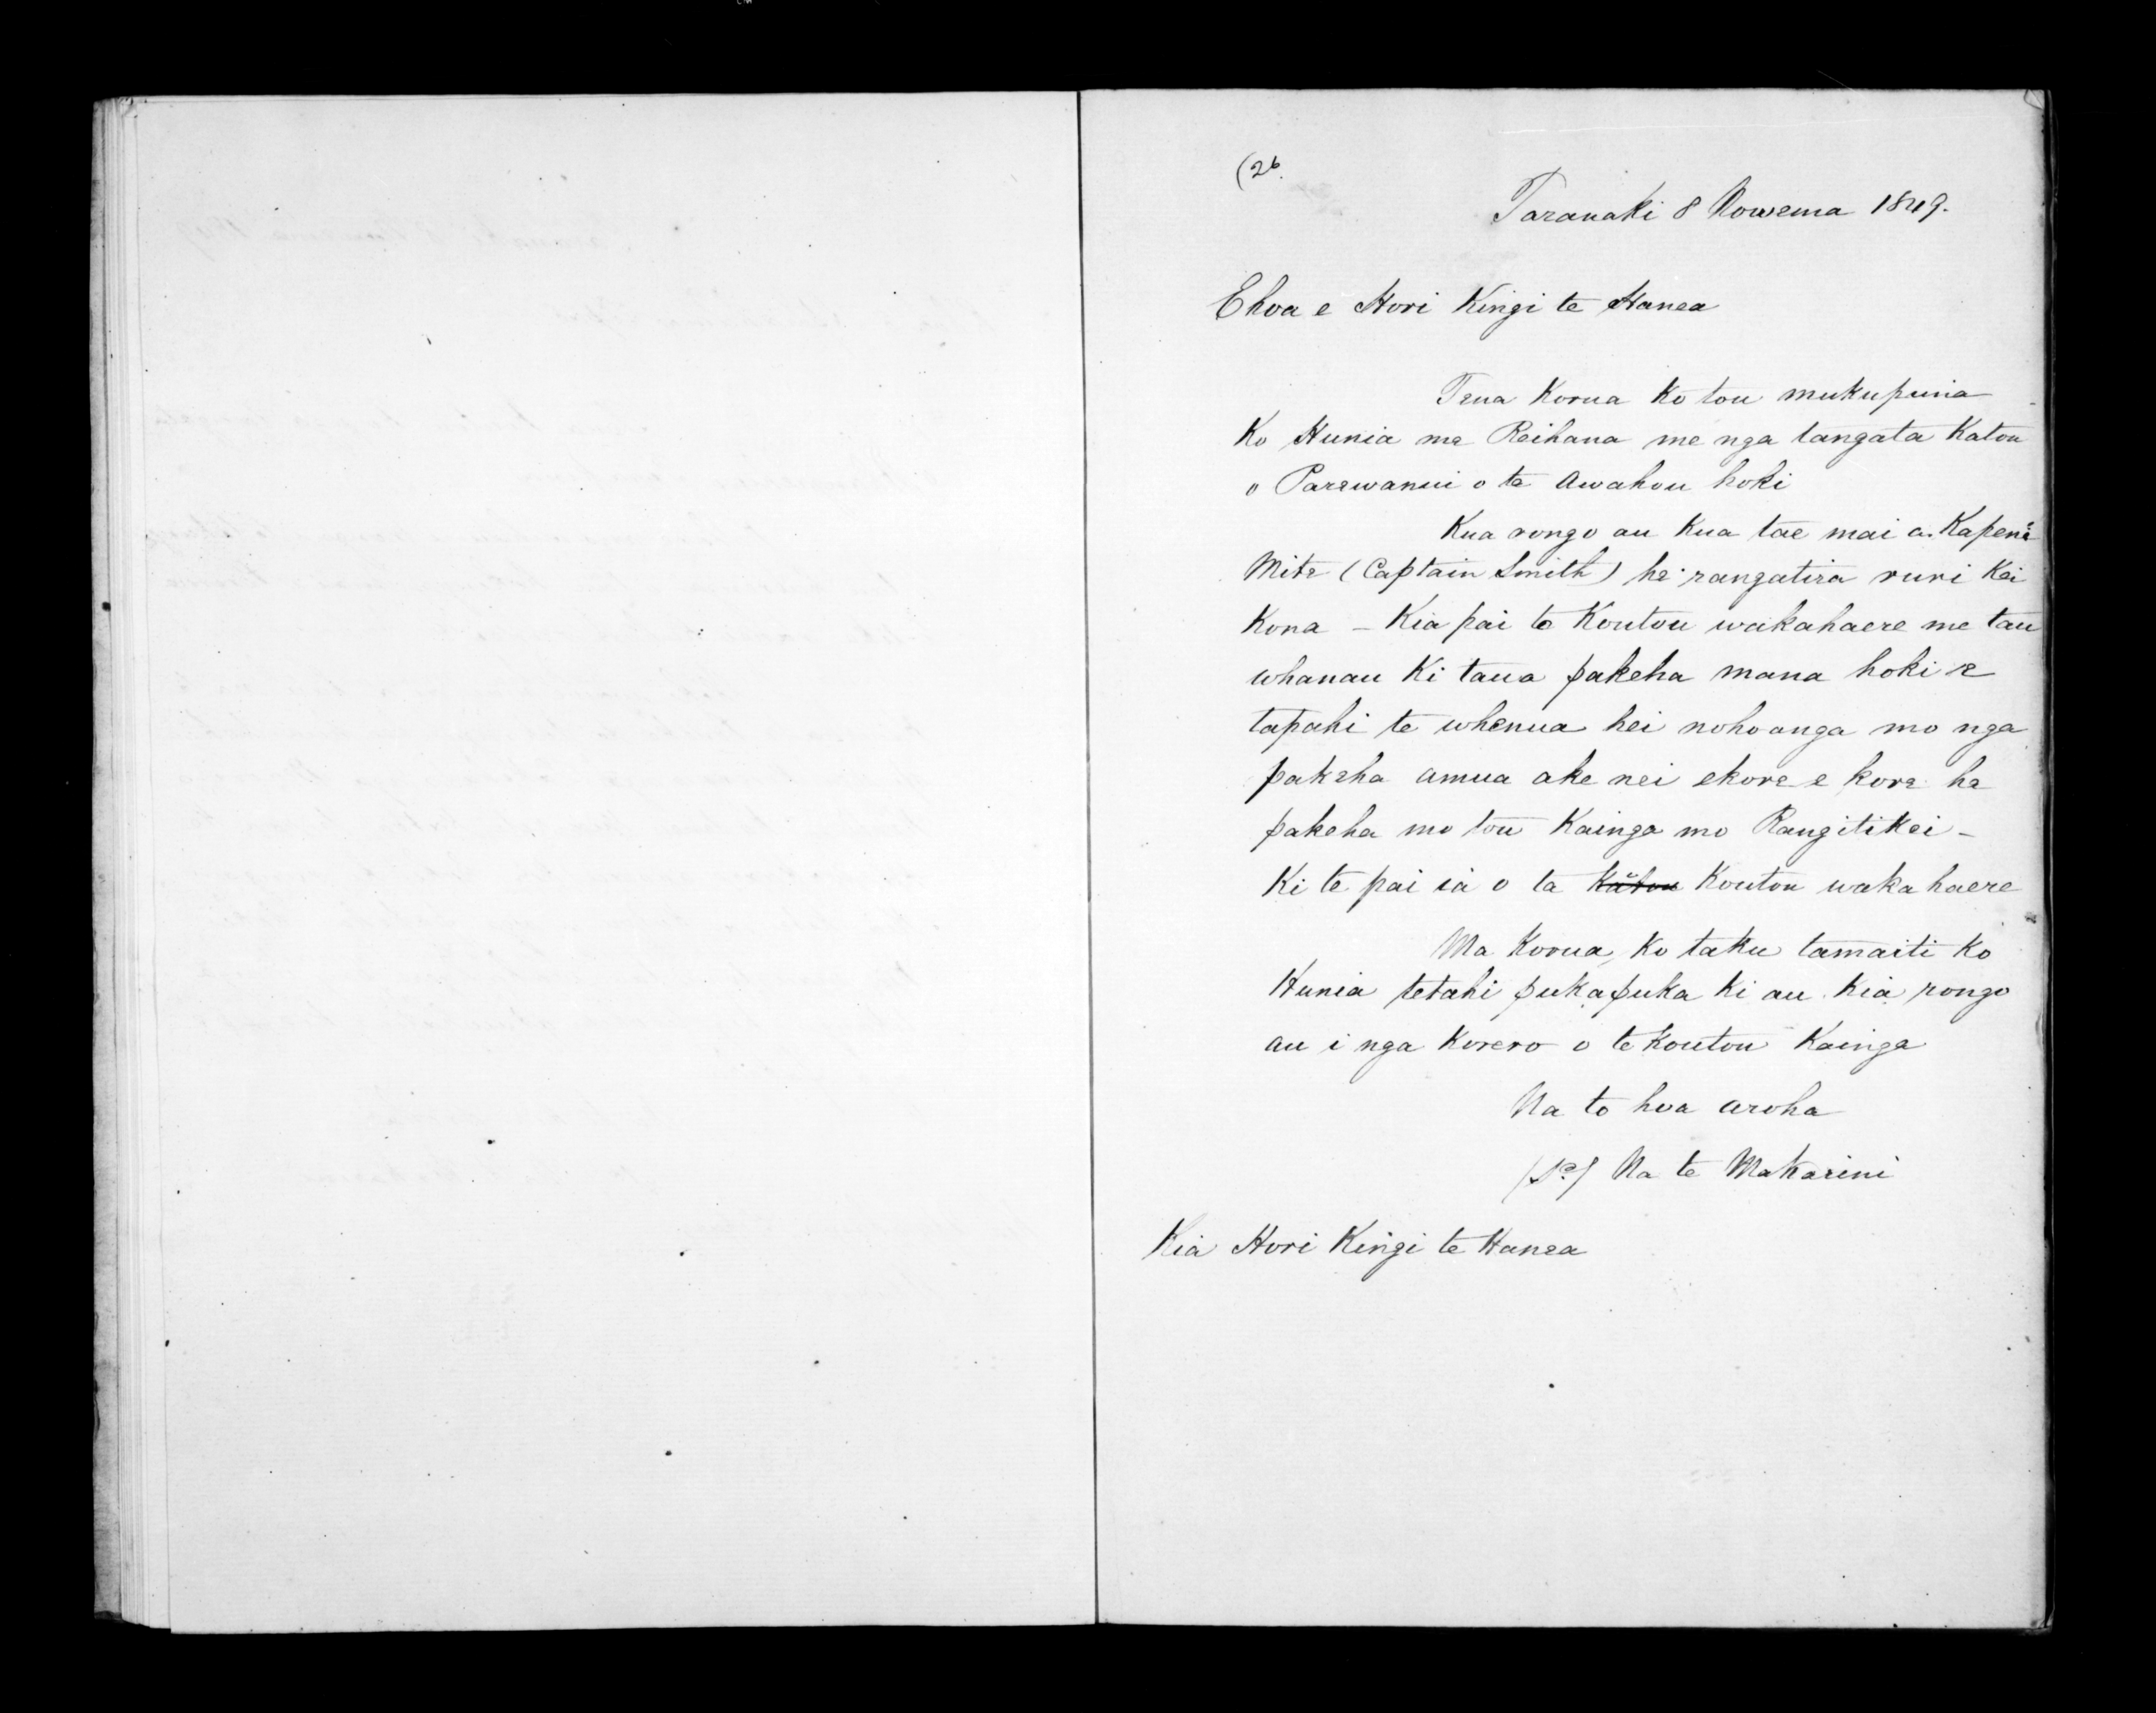 (26.
Taranaki 8 Nowema 1849.
Ehoa e Hori Kingi te Hanea
Tena Korua Ko tou mukupuna
Ko Hunia me Reihana me nga tangata Katou
o Parewanui o te Awahou hoki
Kua rongo au Kua tae mai a Kapene
Mite (Captain Smith) he rangatira ruri Kei
Kona – Kia pai to Koutou wakahaere me tau
whanau Ki taua pakeha mana hoki e
tapahi te whenua hei nohoanga mo nga
pakeha amua ake nei ekore e kore he
pakeha mo tou Kainga mo Rangitikei –
Ki te pai ia o ta Katou Koutou waka haere
Ma Korua Ko taku tamaiti Ko
Hunia tetahi pukapuka Ki au Kia rongo
au i nga Korero o te Koutou Kainga
Na to hoa aroha
Na te Makarini
Kia Hori Kingi te Hanea